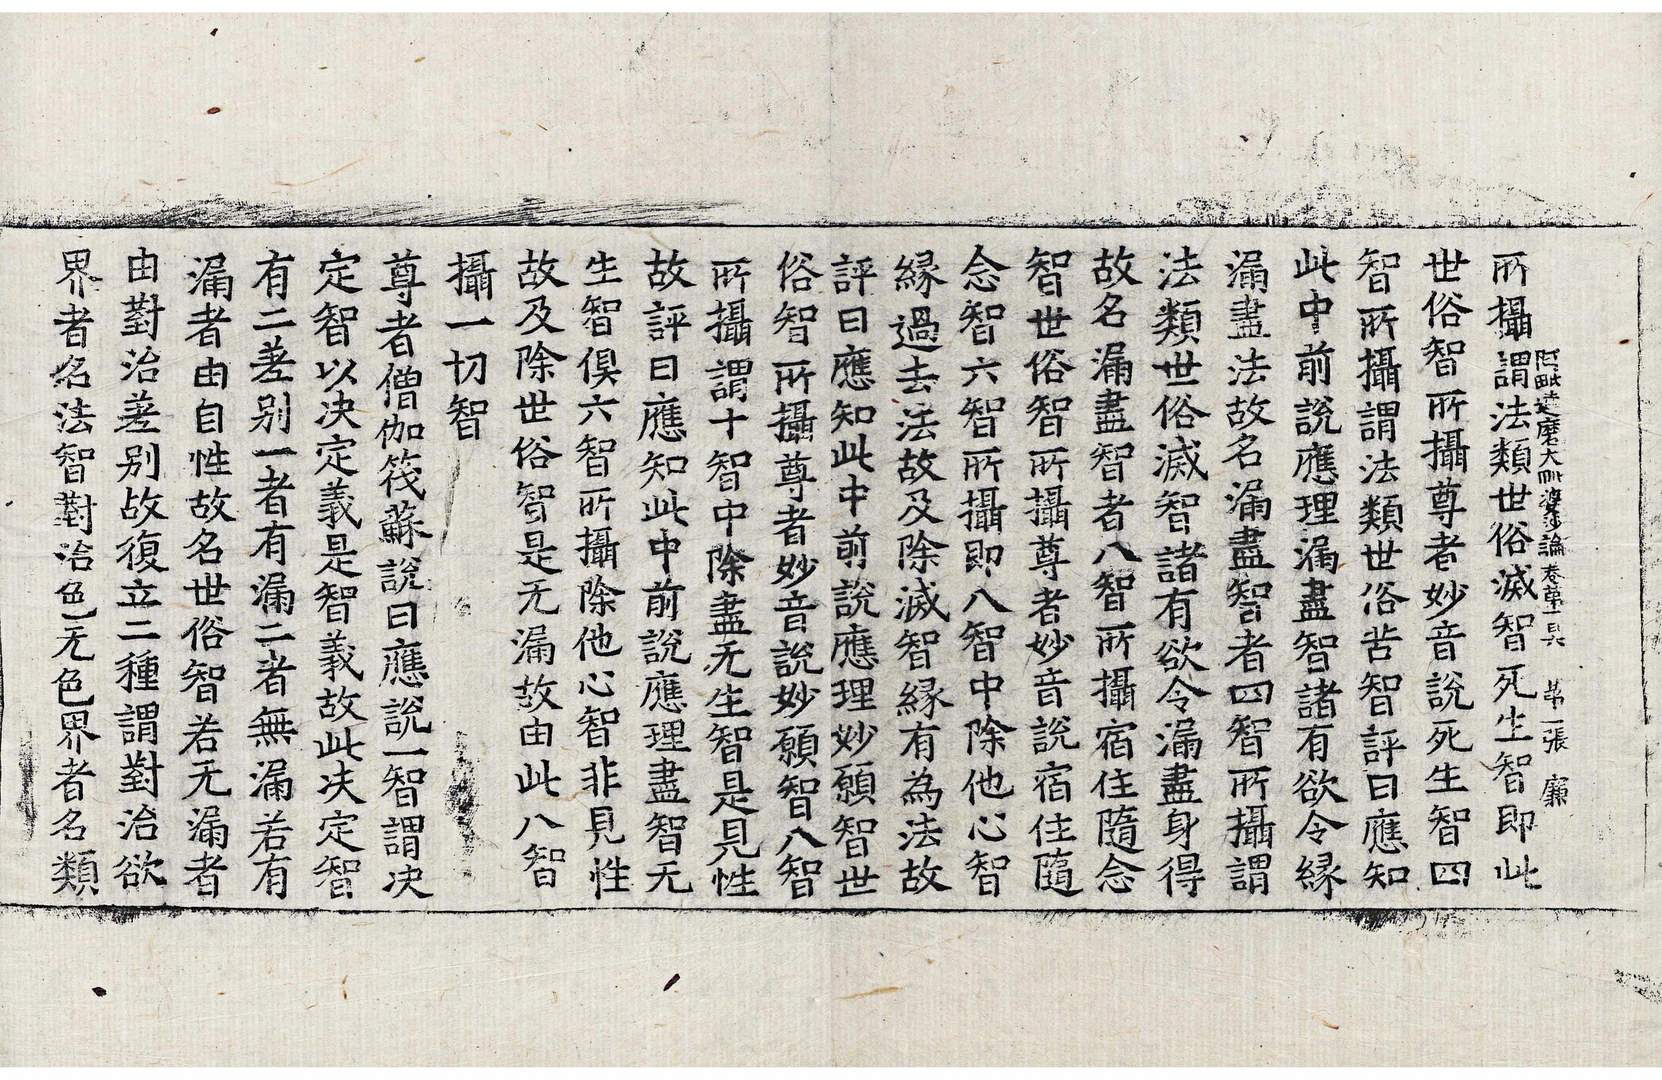 阿毗達磨大毗婆沙論卷第一百六　第二張　廉
所攝謂法類世俗滅智死生智即此
世俗智所攝尊者妙音說死生智四
智所攝謂法類世俗苦智評曰應知
此中前說應理漏盡智諸有欲令緣
漏盡法故名漏盡智者四智所攝謂
法類世俗滅智諸有欲令漏盡身得
故名漏盡智者八智所攝宿住隨念
智世俗智所攝尊者妙音說宿住隨
念智六智所攝即八智中除他心智
緣過去法故及除滅智緣有為法故
評曰應知此中前說應理妙願智世
俗智所攝尊者妙音說妙願智八智
所攝謂十智中除盡无生智是見性
故評曰應知此中前說應理盡智无
生智俱六智所攝除他心智非見性
故及除世俗智是无漏故由此八智
攝一切智
尊者僧伽筏蘇說曰應說一智謂决
定智以决定義是智義故此决定智
有二差别一者有漏二者無漏若有
漏者由自性故名世俗智若无漏者
由對治差别故復立二種謂對治欲
界者名法智對治色无色界者名類